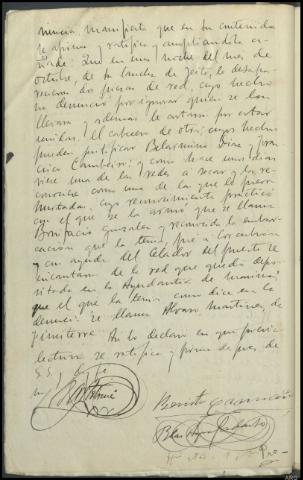 nuncia, manifiesta que en su contenido
se afirma y ratifica, ampliandola a
ñade: Que en una noche del mes de
octubre, de su lancha de Jeito, le desapa-
recieron dos piezas de red, cuyo hecho
no denunció por ignorar quien se las
llevara y además le cortaron por cortar
el cabecero de otra; cuyos hechos
pueden justificar Belarmino Diaz y Fran-
cisco Cambeiro; y como hace unos dias
viese una de las redes a secar y la re-
conociese como una de las que le fueron
hurtadas, cuyo reconocimiento practicó
con el que se la armó que se llama
Bonifacio Gonzalez y reconocida la embar-
cación que la tenia, fué a Corcubion
y con ayuda del Celador del puerto se
incautaron de la red que quedó depo-
sitada en la Ayudantia de marina;
que el que la tenia como dice en la
denuncia se llama Alvaro Martinez, de
Finisterre. Asi lo declara en que previa
lectura se ratifica y firma despues de
S.S. y doy fe
Benito
Blas